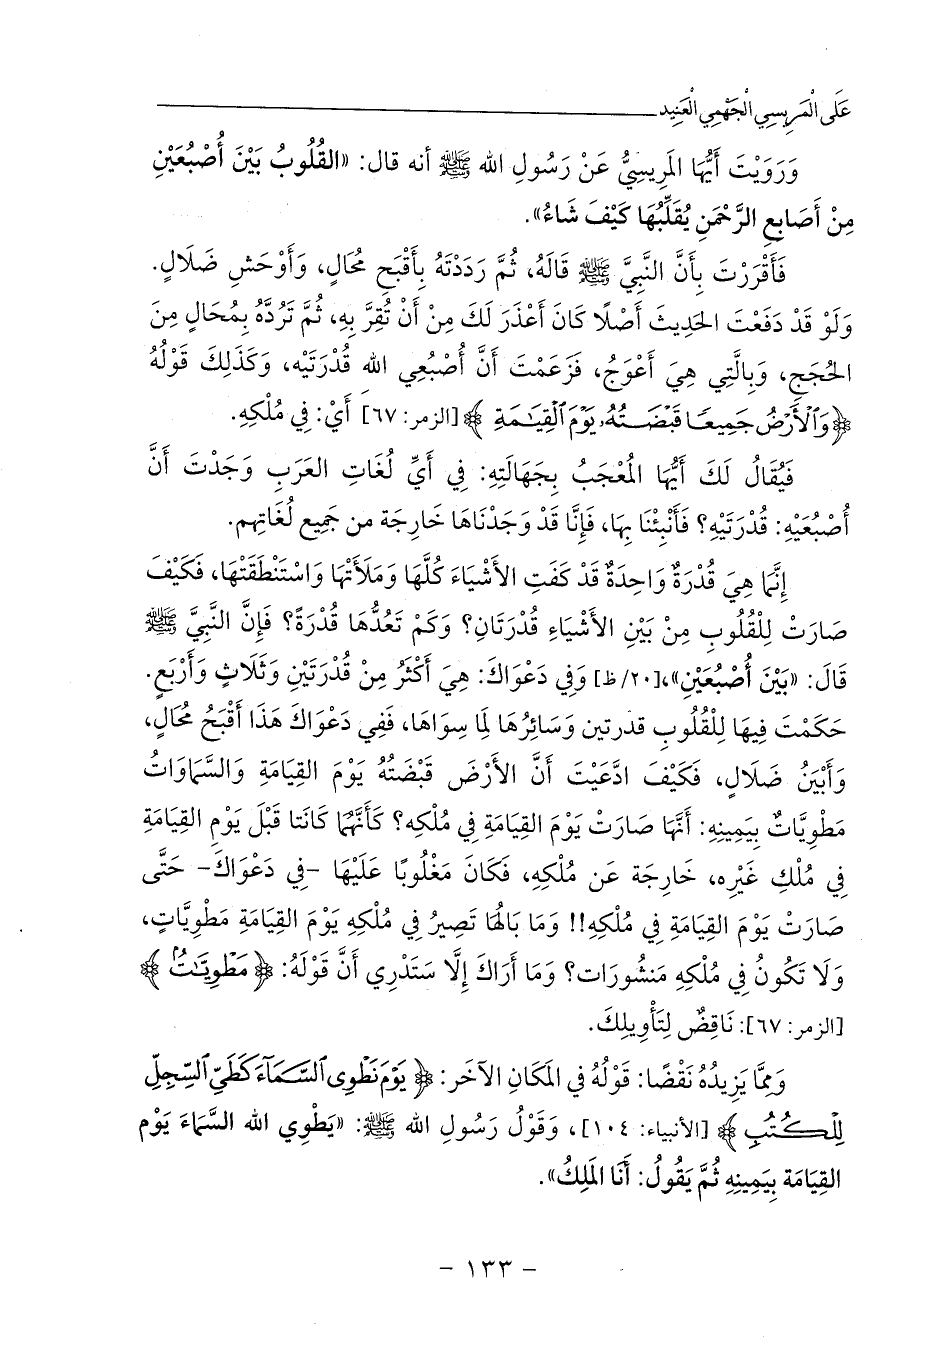 عَلَى الْمَرِيسِي الْجَهْمِي الْعَنِيد
وَرَوَيْتَ أَيُّهَا المَرِيسِيُّ عَنْ رَسُولِ الله ﷺ أنه قال: «القُلُوبُ بَيْنَ أُصْبُعَيْنِ
مِنْ أَصَابِعِ الرَّحْمَنِ يُقَلِّبُهَا كَيْفَ شَاءُ».
فَأَقْرَرْتَ بِأَنَّ النَّبِيَّ ﷺ قَالَهُ، ثُمَّ رَدَدْتَهُ بِأَقْبَحِ مُحَالٍ، وَأَوْحَشِ ضَلَالٍ.
وَلَوْ قَدْ دَفَعْتَ الحَدِيثَ أَصْلًا كَانَ أَعْذَرَ لَكَ مِنْ أَنْ تُقِرَّ بِهِ، ثُمَّ تَرُدَّهُ بِمُحَالٍ مِنَ
الحُجَجِ، وَبِالَّتِي هِيَ أَعْوَجُ، فَزَعَمْتَ أَنَّ أُصْبُعِي الله قُدْرَتَيْهِ، وَكَذَلِكَ قَوْلُهُ
﴿وَٱلْأَرْضُ جَمِيعًا قَبْضَتُهُۥ يَوْمَ ٱلْقِيَٰمَةِ﴾ [الزمر: ٦٧] أَيْ: فِي مُلْكِهِ.
فَيُقَالُ لَكَ أَيُّهَا المُعْجَبُ بِجَهَالَتِهِ: فِي أَيِّ لُغَاتِ العَرَبِ وَجَدْتَ أَنَّ
أُصْبُعَيْهِ: قُدْرَتَيْهِ؟ فَأَنْبِئْنَا بِهَا، فَإِنَّا قَدْ وَجَدْنَاهَا خَارِجَة من جَمِيع لُغَاتِهِم.
إِنَّمَا هِيَ قُدْرَةٌ وَاحِدَةٌ قَدْ كَفَتِ الأَشْيَاءَ كُلَّهَا وَمَلَأَتْهَا وَاسْتَنْطَقَتْهَا، فَكَيْفَ
صَارَتْ لِلْقُلُوبِ مِنْ بَيْنِ الأَشْيَاءِ قُدْرَتَانِ؟ وَكَمْ تَعُدُّهَا قُدْرَةً؟ فَإِنَّ النَّبِيَّ ﷺ
قَالَ: «بَيْنَ أُصْبُعَيْنِ»،[٢٠/ظ] وَفِي دَعْوَاكَ: هِيَ أَكْثَرُ مِنْ قُدْرَتَيْنِ وَثَلَاثٍ وَأَرْبَعٍ.
حَكَمْتَ فِيهَا لِلْقُلُوبِ قدرتين وَسَائِرُهَا لِمَا سِوَاهَا، فَفِي دَعْوَاكَ هَذَا أَقْبَحُ مُحَالٍ،
وَأَبْيَنُ ضَلَالٍ، فَكَيْفَ ادَّعَيْتَ أَنَّ الأَرْضَ قَبْضَتُهُ يَوْمَ القِيَامَةِ وَالسَّمَاوَاتُ
مَطْوِيَّاتٌ بِيَمِينِهِ: أَنَّهَا صَارَتْ يَوْمَ القِيَامَةِ فِي مُلْكِه؟ كَأَنَّهُمَا كَانَتَا قَبْلَ يَوْمِ القِيَامَةِ
فِي مُلْكِ غَيْرِه، خَارِجَة عَن مُلْكِهِ، فَكَانَ مَغْلُوبًا عَلَيْهَا -فِي دَعْوَاكَ- حَتَّى
صَارَتْ يَوْمَ القِيَامَةِ فِي مُلْكِهِ!! وَمَا بَالُهَا تَصِيرُ فِي مُلْكِهِ يَوْمَ القِيَامَةِ مَطْوِيَّاتٍ،
وَلَا تَكُونُ فِي مُلْكِهِ مَنشُورَات؟ وَمَا أَرَاكَ إِلَّا سَتَدْرِي أَنَّ قَوْلَهُ: ﴿مَطْوِيَّٰتٌ﴾
[الزمر: ٦٧]: نَاقِضٌ لِتَأْوِيلِكَ.
وَمِمَّا يَزِيدُهُ نَقْضًا: قَوْلُهُ فِي المَكَانِ الآخَرِ: ﴿يَوْمَ نَطْوِى ٱلسَّمَآءَ كَطَىِّ ٱلسِّجِلِّ
لِلْكُتُبِ﴾ [الأنبياء: ١٠٤]، وَقَوْلُ رَسُولِ الله ﷺ: «يَطْوِي الله السَّمَاءَ يَوْمَ
القِيَامَة بِيَمِينِهِ ثُمَّ يَقُولُ: أَنَا المَلِكُ».
- ١٣٣ -